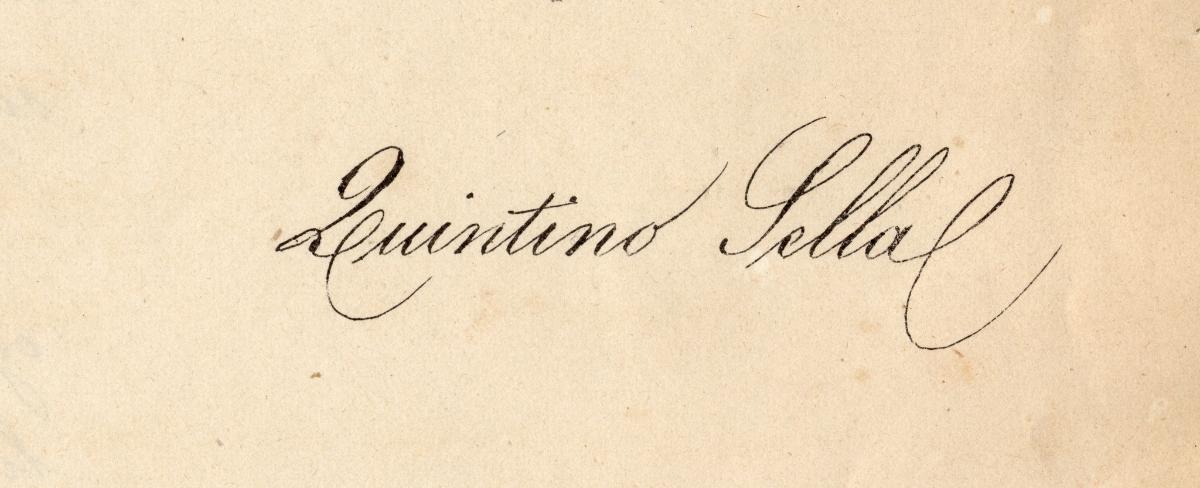 Quintino Sella